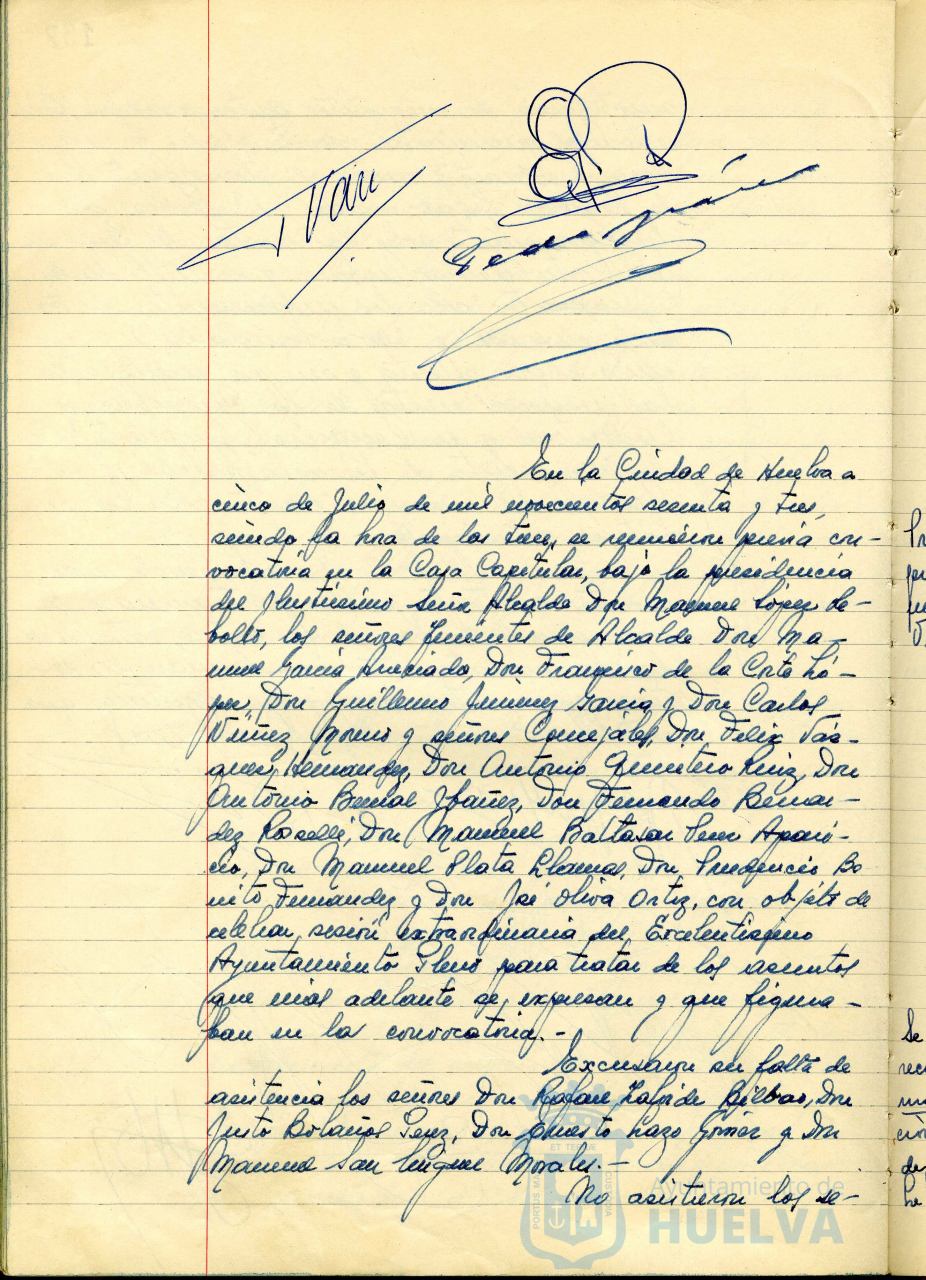 En la Ciudad de Huelva a
cinco de Julio de mil novecientos sesenta y tres,
siendo la hora de las trece, se reunieron previa con-
vocatoria en la Casa Capitular, bajo la presidencia
del Ilustrisimo Señor Alcalde Don Manuel López Re-
bollo, los señores Tenientes de Alcalde Don Ma-
nuel Garcia Anciado, Don Francisco de la Corte Ló-
pez, Don Guillermo Jimenez Garcia y Don Carlos
Núñez Moreno y señores Concejales, Don Felix Váz-
quez Hernandez, Don Antonio Quintero Ruiz, Don
Antonio Bernal Ibañez, Don Fernando Bernar-
dez Roselló, Don Manuel Baltasar Apari-
cio, Don Manuel Plata Llamas, Don Prudencio Be
nito Fernandez y Don José Oliva Ortiz, con objeto de
celebrar sesión extraordinaria del Excelentisimo
Ayuntamiento Pleno para tratar de los asuntos
que mas adelante se expresan y que figura-
ban en la convocatoria.-
Excusaron su falta de
asistencia los señores Don Rafael de Bilbao, Don
Justo Bolaños Perez, Don Ernesto Lazo Gómez y Don
Manuel San Miguel Morales.-
No asistieron los se-
Ayuntamiento de
HUELVA